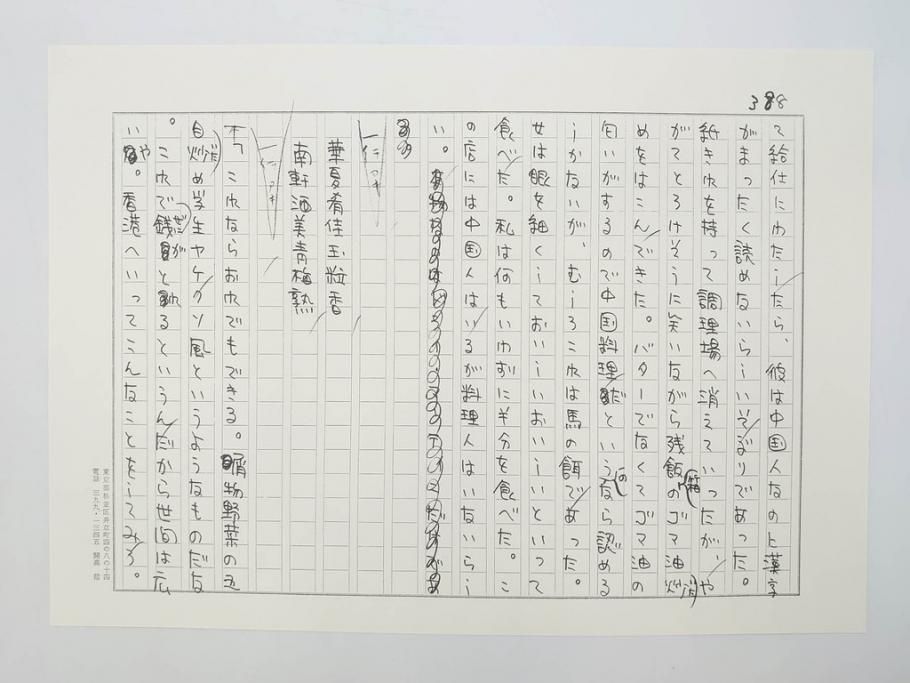 388
て給仕にわたしたら、彼は中国人なのと漢字
がまったく読めないらしいそぶりであった。
紙きれを持って調理場へ消えていったが、や
がてとろけそうに笑いながら残飯の箱のゴマ油炒
めをはこんできた。バターでなくてゴマ油の
匂いがするので中国料理だというのなら認める
しかないが、むしろこれは馬の餌であった。
女は眼を細くしておいしいおいしいといって
食べた。私は何もいわずに半分を食べた。こ
の店には中国人はいるが料理人はいないらし
い。
華夏肴佳玉粒香
南軒酒美青梅熟
これならおれでもできる。屑物野菜の五
目炒め学生ヤケクソ風というようなものだな
。これで銭がとれるというんだから世間は広
いや。香港へいってこんなことをしてみろ。
東京都杉並区井草町四の八の十四
電話 三九九・一三四五 開高 健